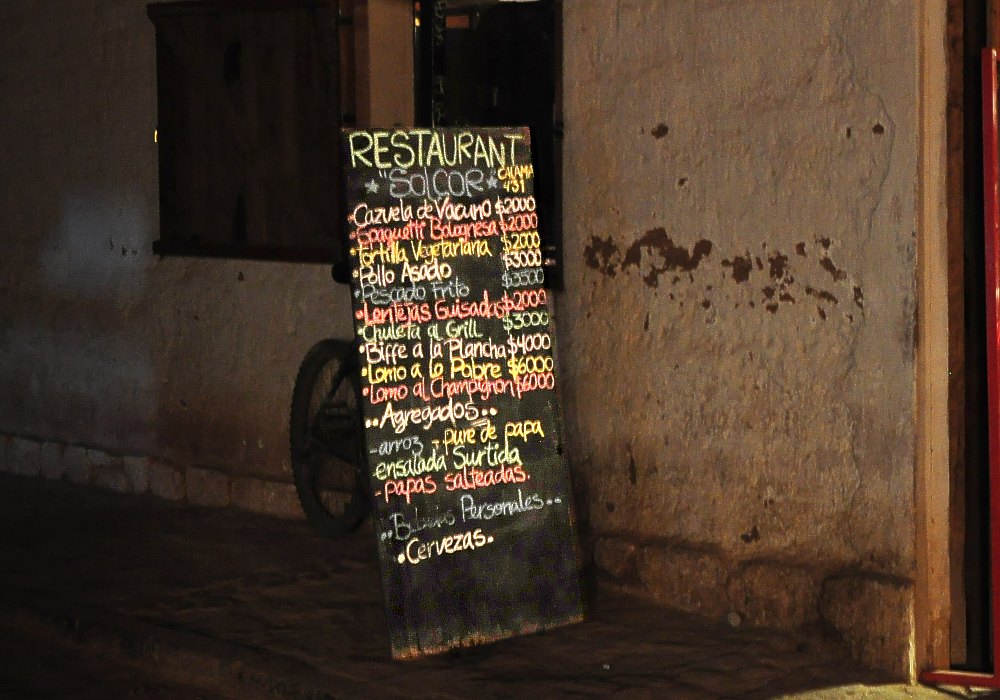 RESTAURANT
"SOlCOR"
CALAMA
431
•Cazuela de Vacuno $2000
•Spaguetti Bolognesa $2000
•Tortilla Vegetariana $2000
•Pollo Asado $3000
•Pescado Frito $3500
•Lentejas Guisadas $2000
•Chuleta al Grill $3000
•Biffe a la Plancha $4000
•Lomo a lo Pobre $6000
•Lomo al Champignon $6000
••Agregados••
-arroz - pure de papa
ensalada Surtida
-papas salteadas.
••Bebidas Personales••
•Cervezas•